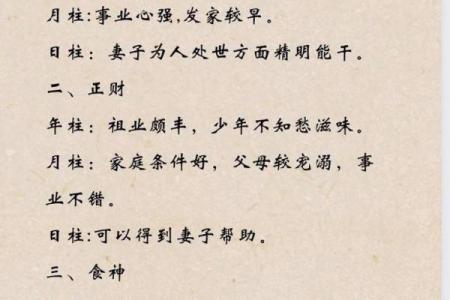 月柱:事业心强,发家较早。
日柱：妻子为人处世方面精明能干。
二、正财
年柱：祖业颇丰，少年不知愁滋味。
月柱：家庭条件好，父母较宠溺，事
业不错。
日柱:可以得到妻子帮助。
三、食神